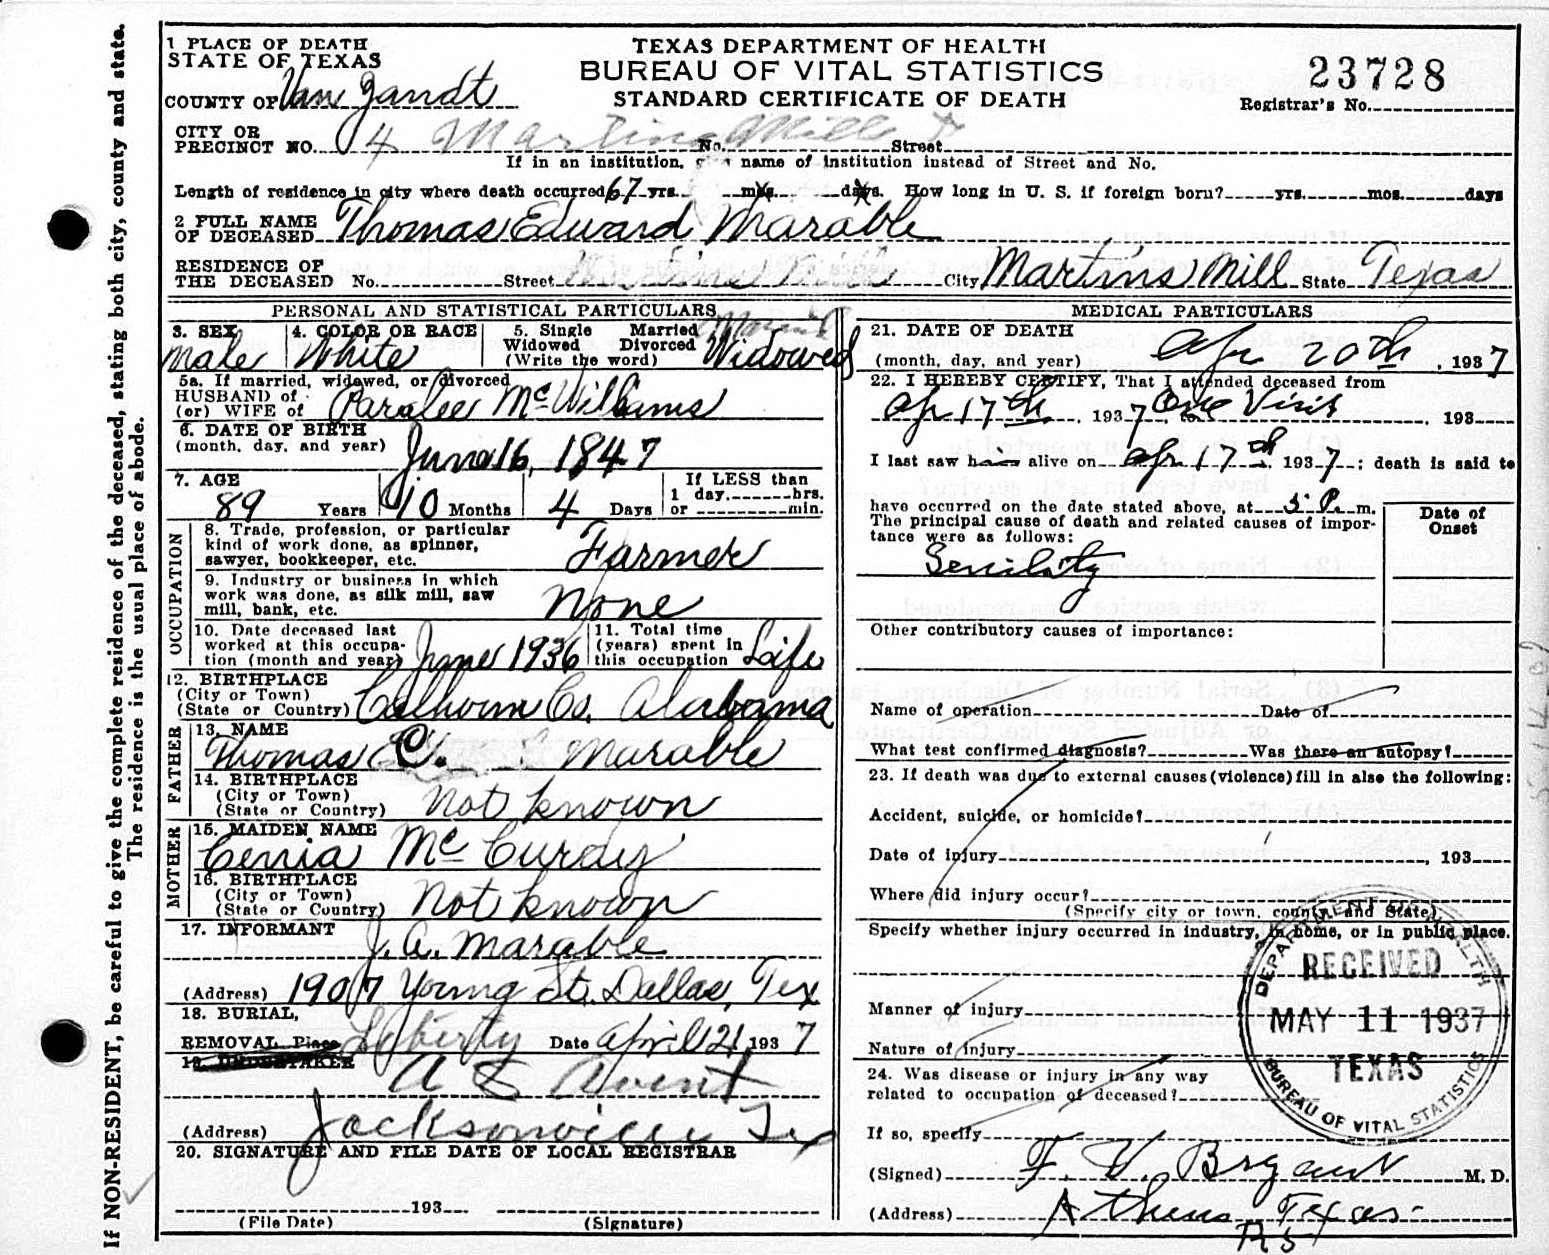 If NON-RESIDENT, be careful to give the complete residence of the deceased, stating both city, county and state.
The residence is the usual place of abode.
TEXAS DEPARTMENT OF HEALTH
BUREAU OF VITAL STATISTICS
STANDARD CERTIFICATE OF DEATH
23728
Registrar's No.
1 PLACE OF DEATH
STATE OF TEXAS
COUNTY OF Van Zandt
CITY OR
PRECINCT NO. 4 Martins Mill No. Street
If in an institution, give name of institution instead of Street and No.
Length of residence in city where death occurred 67 yrs. mos. days. How long in U. S. if foreign born? yrs. mos. days
2 FULL NAME
OF DECEASED Thomas Edward Marable
RESIDENCE OF
THE DECEASED No. Street Martins Mill City Martins Mill State Texas
PERSONAL AND STATISTICAL PARTICULARS
3. SEX 4. COLOR OR RACE 5. Single Married
Widowed Divorced
(Write the word)
Male White Widowed
5a. If married, widowed, or divorced
HUSBAND of
(or) WIFE of Paralee McWilliams
6. DATE OF BIRTH
(month, day, and year) June 16, 1847
7. AGE If LESS than
1 day, hrs.
or min.
89 Years 10 Months 4 Days
OCCUPATION
8. Trade, profession, or particular
kind of work done, as spinner,
sawyer, bookkeeper, etc. Farmer
9. Industry or business in which
work was done, as silk mill, saw
mill, bank, etc. None
10. Date deceased last
worked at this occupa-
tion (month and year) June 1936
11. Total time
(years) spent in
this occupation Life
12. BIRTHPLACE
(City or Town)
(State or Country) Calhoun Co. Alabama
FATHER
13. NAME
Thomas C. Marable
14. BIRTHPLACE
(City or Town)
(State or Country) Not known
MOTHER
15. MAIDEN NAME
McCurdy
16. BIRTHPLACE
(City or Town)
(State or Country) Not known
17. INFORMANT
J. A. Marable
(Address) 1907 Young St. Dallas, Tex
18. BURIAL,
REMOVAL Place Liberty Date April 21, 1937
19. UNDERTAKER
A & Avent
(Address) Jacksonville Tex
20. SIGNATURE AND FILE DATE OF LOCAL REGISTRAR
193
(File Date) (Signature)
MEDICAL PARTICULARS
21. DATE OF DEATH
(month, day, and year) Apr 20th, 1937
22. I HEREBY CERTIFY, That I attended deceased from
Apr 17th, 1937, to One Visit, 193
I last saw him alive on Apr 17th, 1937; death is said to
have occurred on the date stated above, at 5 P. m.
The principal cause of death and related causes of impor-
tance were as follows:
Date of
Onset
Senility
Other contributory causes of importance:
Name of operation Date of
What test confirmed diagnosis? Was there an autopsy?
23. If death was due to external causes (violence) fill in also the following:
Accident, suicide, or homicide?
Date of injury , 193
Where did injury occur?
(Specify city or town, county, and State)
Specify whether injury occurred in industry, in home, or in public place.
Manner of injury
Nature of injury
24. Was disease or injury in any way
related to occupation of deceased?
If so, specify
(Signed) F. V. Bryant M. D.
(Address) Athens Texas
R 5
DEPARTMENT OF HEALTH
RECEIVED
MAY 11 1937
TEXAS
BUREAU OF VITAL STATISTICS